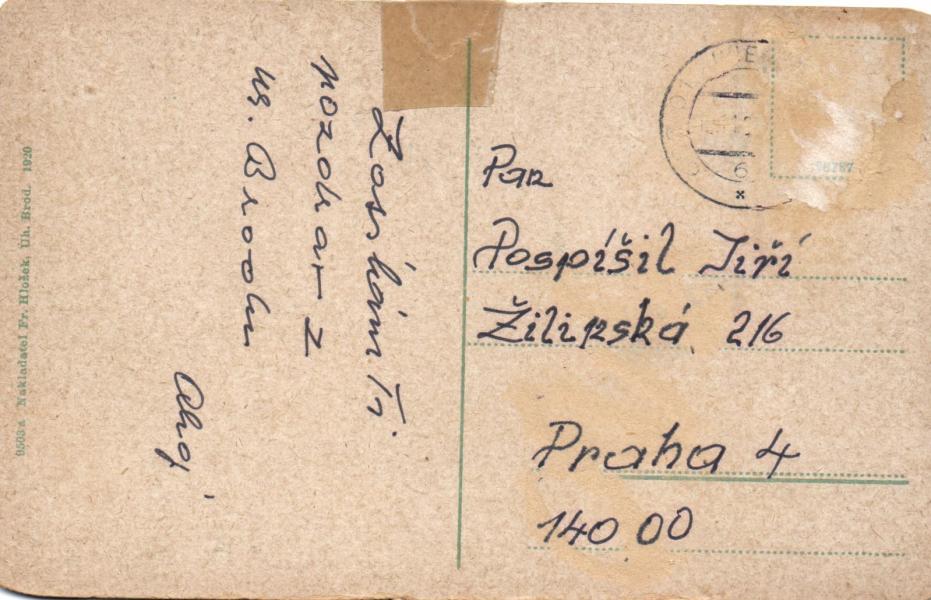 Zasílám Ti
pozdrav z
Uh. Brodu
Ahoj
Pan
Pospíšil Jiří
Žilinská 216
Praha 4
140 00
9503 A Nakladatel Fr. Hložek, Uh. Brod. 1920